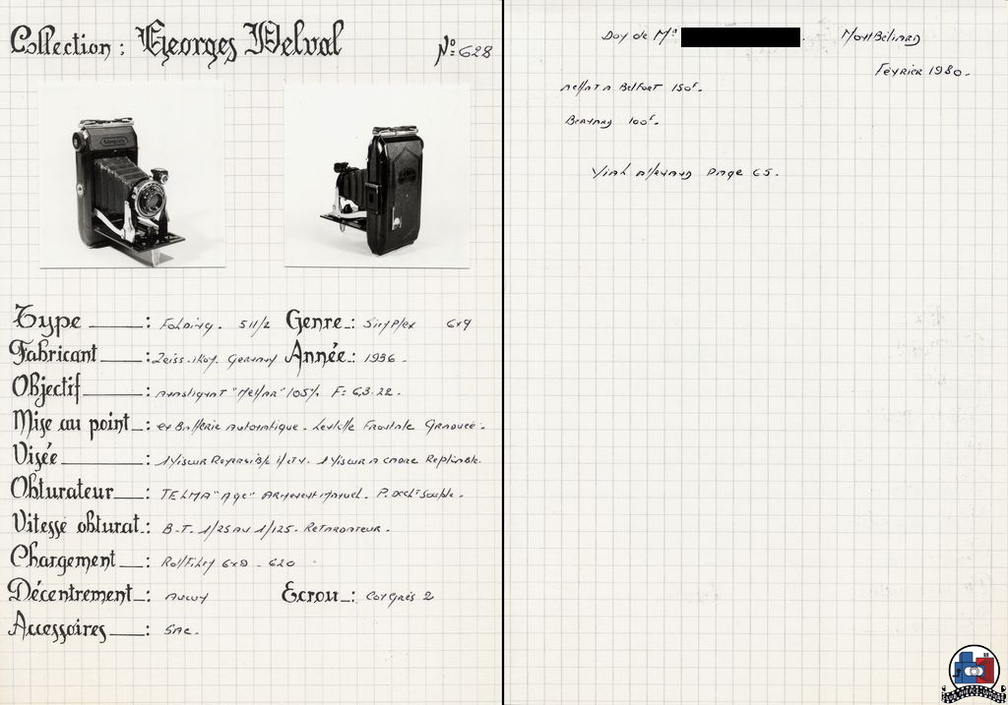 Collection : Georges Delval
N° 628
Type : Folding. 511/2 Genre : Simplex 6x9
Fabricant : Zeiss.Ikon. Germany Année : 1936.
Objectif : Anastigmat "Nettar" 105% F: 6,3.22.
Mise au point : et Bafferie Automatique. Lentille Frontale Graduée.
Visée : 1 Viseur Reversible 1 Viseur A Cadre Repliable.
Obturateur : TELMA "Agc" Armement Manuel. P. Declt Souple.
Vitesse obturat : B.T. 1/25 AU 1/125. Retardateur.
Chargement : Rollfilm 6x9 - 620
Décentrement : Aucun Ecrou : Congrès 2
Accessoires : Sac.
Don de Mr . Montbéliard
Février 1980.
Belfort 150F.
100F.
Page 65.